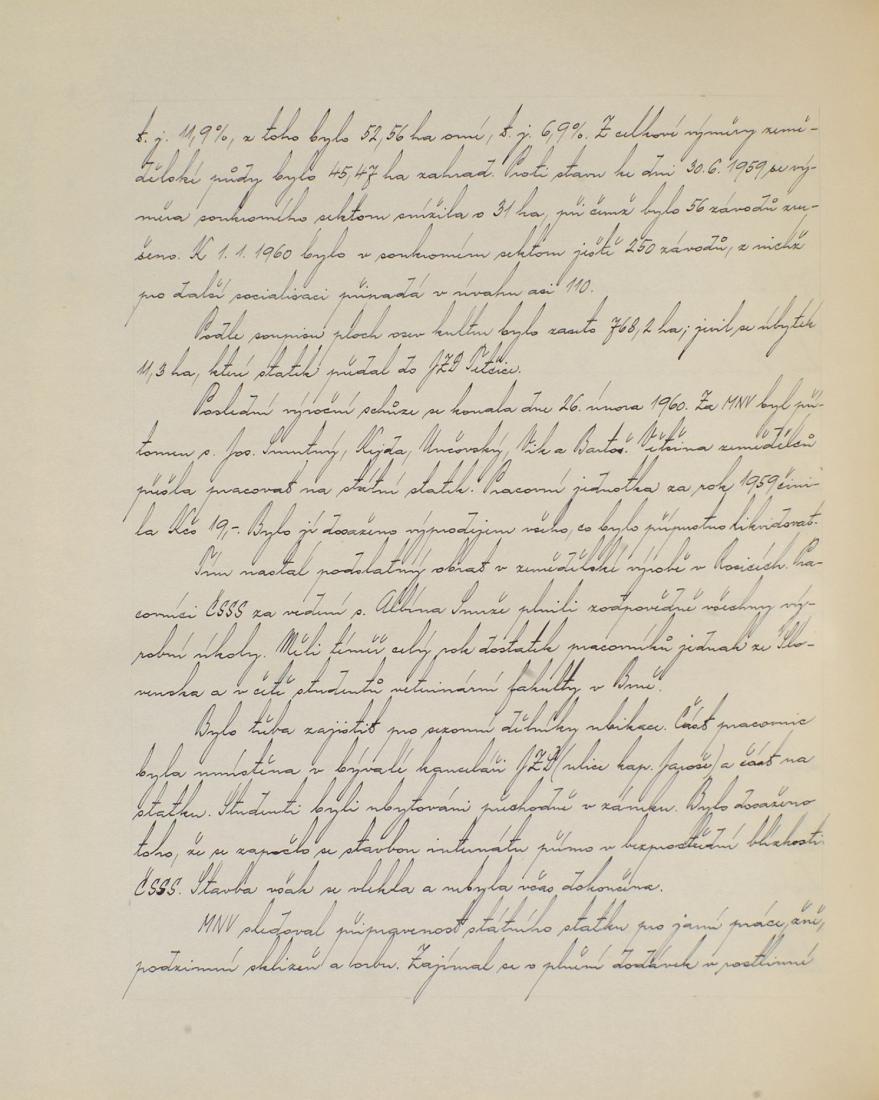 t. j. 11,9%, z toho bylo 52,56 ha orné, t. j. 6,9%. Z celkové výměry země-
dělské půdy bylo 45,47 ha zahrad. Proti stavu ke dni 30.6.1959 se vý-
měra soukromého sektoru snížila o 31 ha, při čemž bylo 56 závodů zru-
šeno. K 1.1.1960 bylo v soukromém sektoru ještě 250 závodů, z nichž
pro další socialisaci připadá v úvahu asi 110.
Podle soupisu ploch osev kultur bylo zaseto 768,2 ha; jevil se úbytek
11,3 ha, které statek předal do JZD Tetčice.
Poslední výroční schůze se konala dne 26. února 1960. Za MNV byl pří-
tomen s. Jos. Smutný, Kejda, Unčovský, Vik a Bartoš. Většina zemědělců
přešla pracovat na státní statek. Pracovní jednotka za rok 1959 čini-
la Kčs 19,-. Bylo jí dosaženo výprodejem všeho, co bylo přípustno likvidovat.
Tím nastal podstatný obrat v zemědělské výrobě v Rosicích. Pra-
covníci ČSSS za vedení s. Albína Smrže plnili zodpovědně všechny vý-
robní úkoly. Měli téměř celý rok dostatek pracovníků jednak ze Slo-
venska a v četě studentů veterinární fakulty v Brně.
Bylo třeba zajistit pro sezonní dělníky ubikace. Část pracovnic
byla umístěna v bývalé kanceláři JZD (ulice kap. Jaroše) a část na
statku. Studenti byli ubytováni přechodně v zámku. Bylo dosaženo
toho, že se započlo se stavbou internátu přímo v bezprostřední blízkosti
ČSSS. Stavba však se vlekla a nebyla včas dokončena.
MNV sledoval připravenost státního statku pro jarní práce, žně,
podzimní sklizeň a orbu. Zajímal se o plnění dodávek v rostlinné